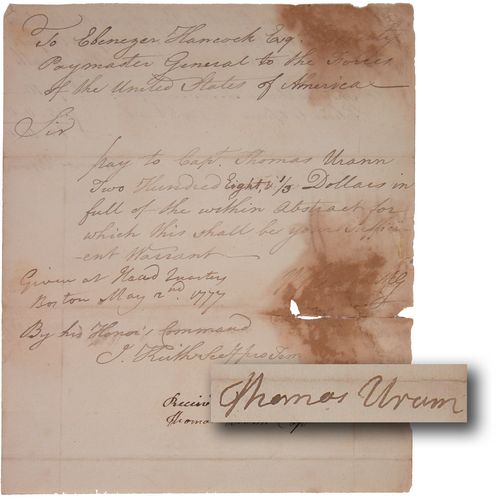 To Ebenezer Hancock Esq.
Paymaster General to the Forces
of the United States of America
Sir
pay to Capt. Thomas Urann
Two Hundred Eight, & 1/3 Dollars in
full of the within Abstract for
which this shall be your Suffici-
ent Warrant
Given at Head Quarters
Boston May 2nd. 1777
By his Honor's Command
Thomas Urann